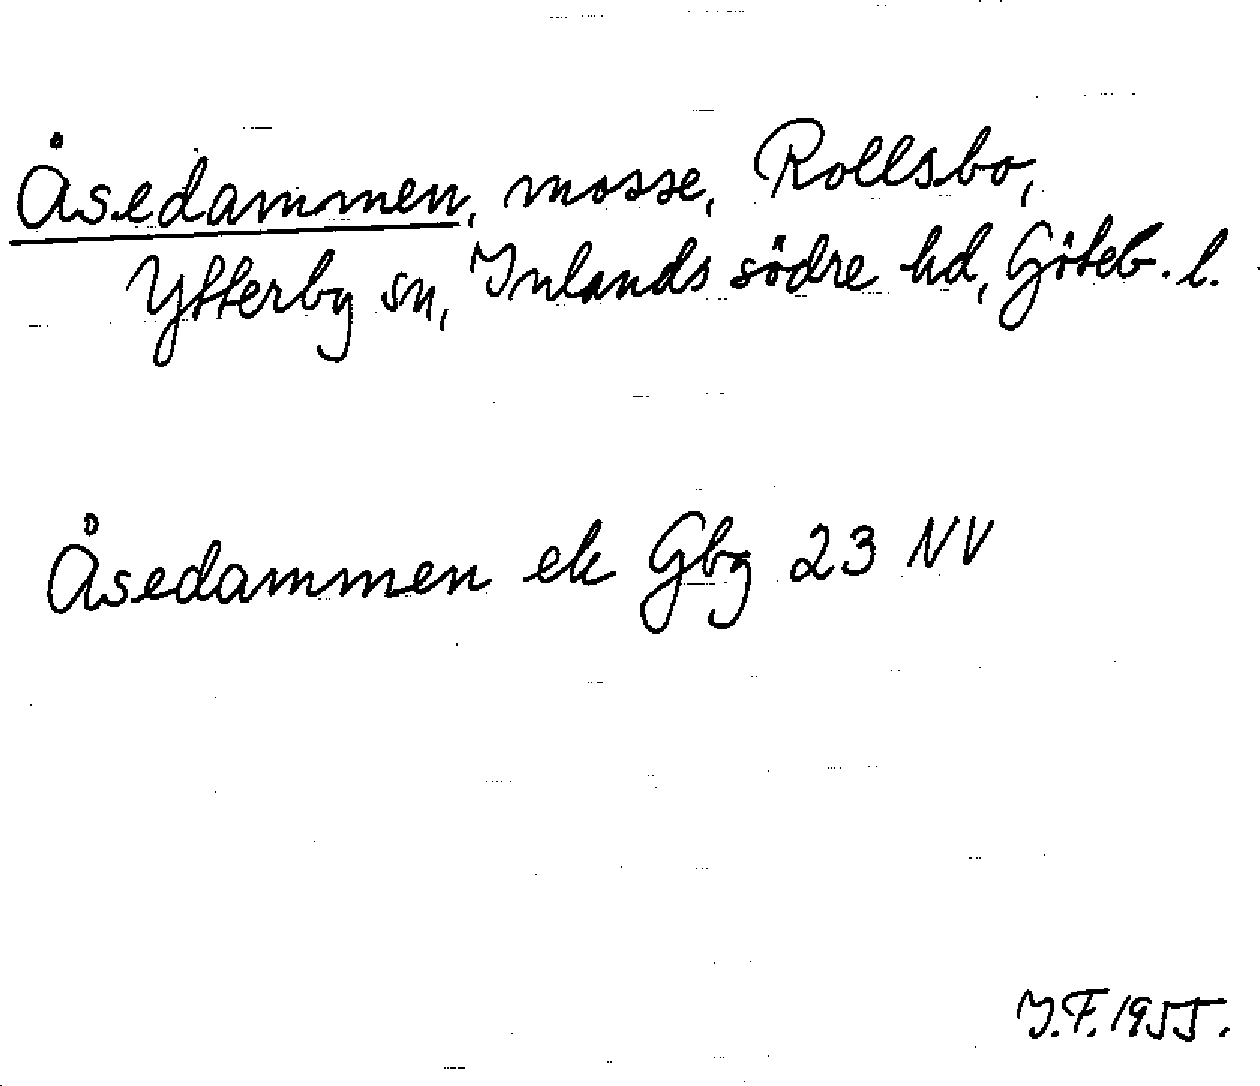 Åsedammen, mosse, Rollsbo,
Ytterby sn, Inlands södre hd, Göteb. l.
Åsedammen ek Gbg 23 NV
I.F. 1955.